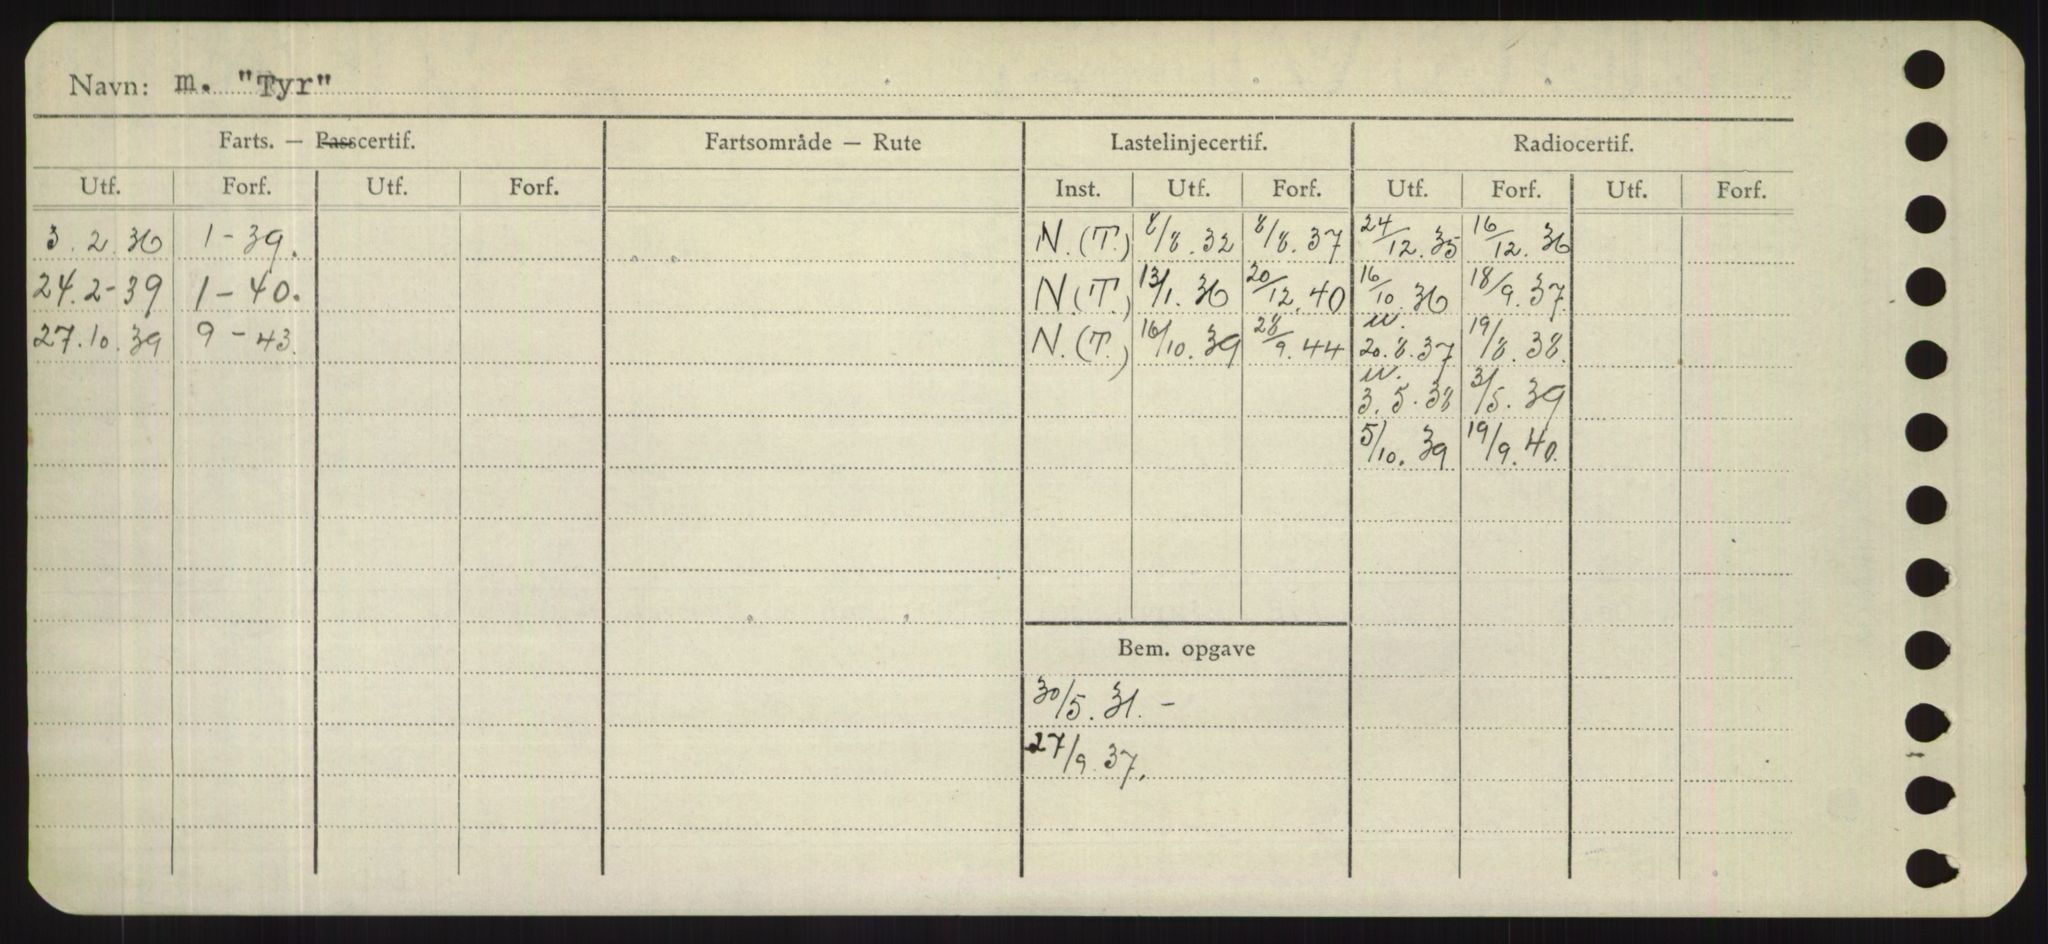 Navn: m. "Tyr"
Farts. — Passcertif. Fartsområde — Rute Lastelinjecertif. Radiocertif.
Utf. Forf. Utf. Forf. Inst. Utf. Forf. Utf. Forf. Utf. Forf.
3. 2. 36 1-39. N.(T.) 8/8. 32 8/8. 37 24/12. 35 16/12. 36
24. 2-39 1-40. N.(T.) 13/1. 36 20/12. 40 16/10. 36 18/9. 37
27. 10. 39 9-43. N.(T.) 16/10. 39 28/9. 44 20. 8. 37 19/8. 38.
3. 5. 38 31/5. 39
5/10. 39 19/9. 40.
Bem. opgave
30/5. 31. -
27/9. 37.